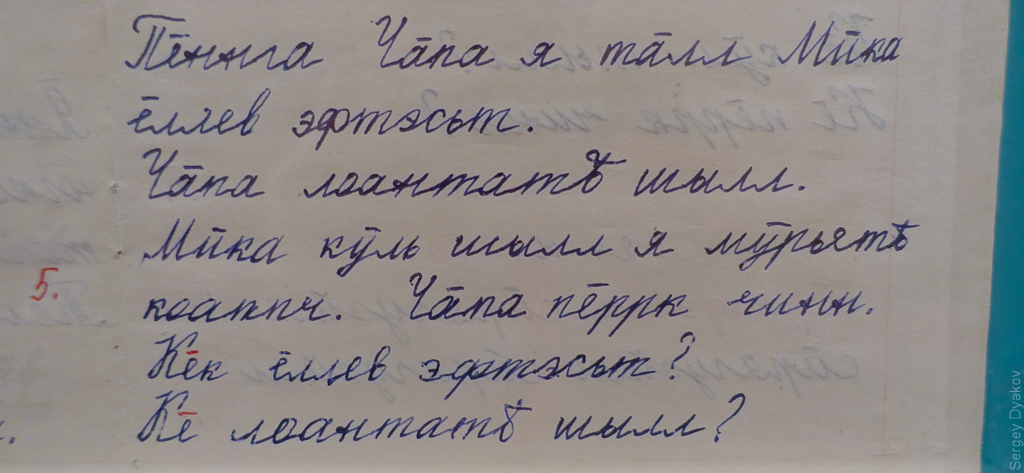 Пе̄ннга Ча̄па я та̄лл Мӣка
ёллев эфтэсьт.
Ча̄па лоантатҍ шылл.
Мӣка кӯль шылл я мӯрьетҍ
5. коаппч. Ча̄па пе̄ррк чинн.
Ке̄к ёллев эфтэсьт?
Ке̄ лоантатҍ шылл?
Sergey Dyakov